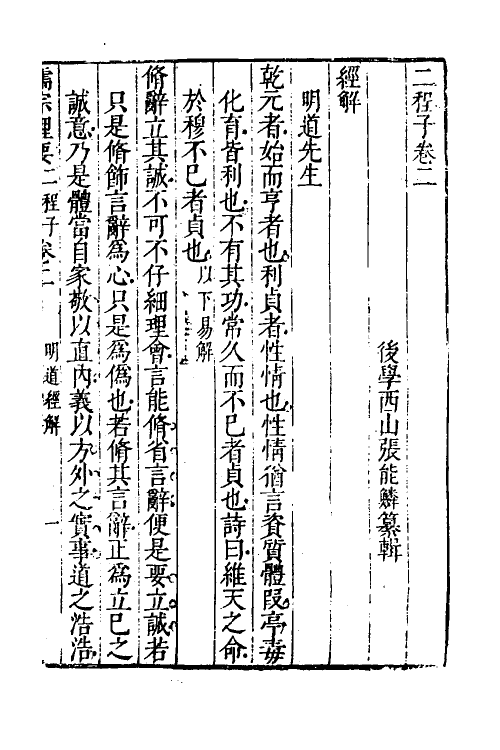 二程子卷二
後學西山張能鱗纂輯
經解
明道先生
乾元者始而亨者也利貞者性情也性情猶言資質體段亭毒
化育皆利也不有其功常久而不已者貞也詩曰維天之命
於穆不已者貞也以下易解
脩辭立其誠不可不仔細理會言能脩省言辭便是要立誠若
只是脩飾言辭為心只是為偽也若脩其言辭正為立已之
誠意乃是體當自家敬以直內義以方外之實事道之浩浩
儒宗理要二程子卷二 明道經解 一